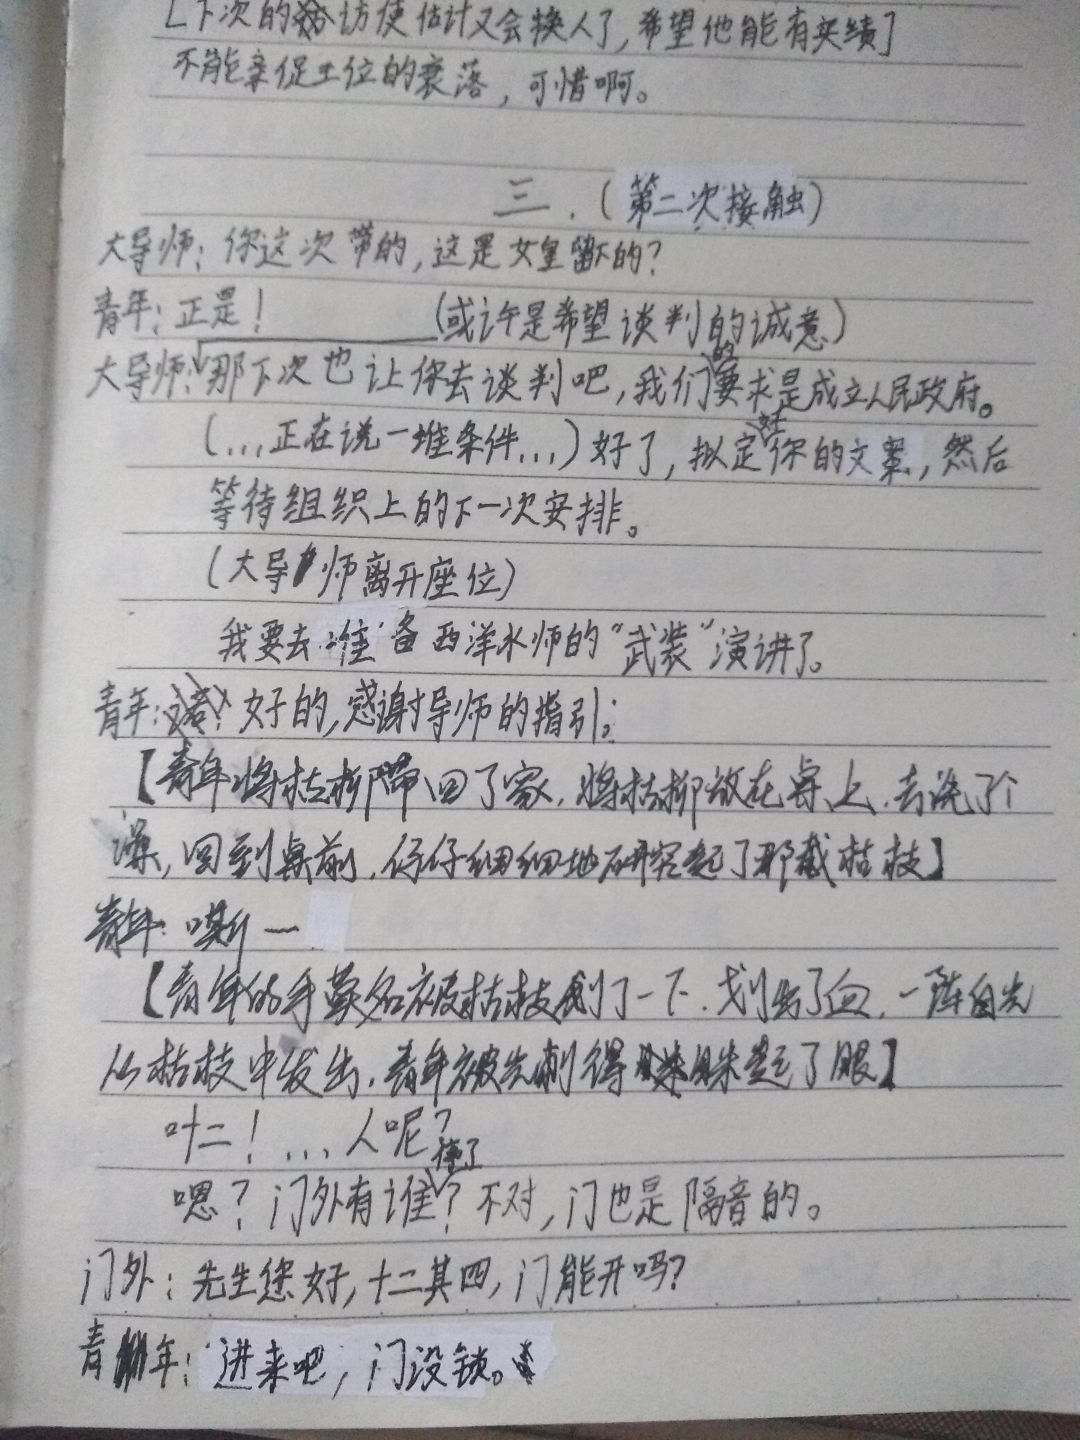 [下次的访使估计又会换人了,希望他能有实绩]
不能亲促王位的衰落,可惜啊。
三.(第二次接触)
大导师:你这次带的,这是女皇留下的?
青年:正是!
(或许是希望谈判的诚意)
大导师:那下次也让你去谈判吧,我们的要求是成立人民政府。
(...正在说一堆条件...)好了,拟定好你的文案,然后
等待组织上的下一次安排。
(大导师离开座位)
我要去准备西洋水师的“武装”演讲了。
青年:好的,感谢导师的指引。
【青年将枯柳带回了家,将枯柳放在桌上,去洗了个
澡,回到桌前,仔仔细细地研究起了那截枯枝】
青年:嘶一
【青年的手莫名被枯枝划了一下,划出了血,一阵白光
从枯枝中发出,青年被光刺得眯起了眼】
叶二!...人呢?
嗯?门外有谁?不对,门也是隔音的。
门外:先生您好,十二其四,门能开吗?
青年:进来吧,门没锁。